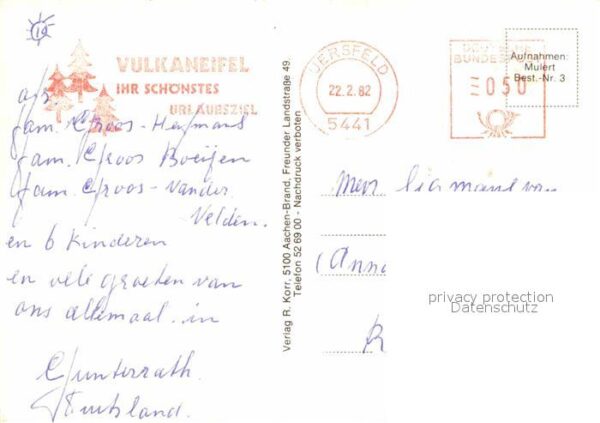 VULKANEIFEL
IHR SCHÖNSTES
URLAUBSZIEL
afz
fam. Croos-Heymans
fam. Croos Boeijen
fam. Croos-Vander
Velden.
en 6 kinderen
en vele groeten van
ons allemaal in
Gunterrath.
Duitsland.
Verlag R. Korr, 5100 Aachen-Brand, Freunder Landstraße 49
Telefon 52 69 00 - Nachdruck verboten
UERSFELD
22.2.82
5441
DEUTSCHE
BUNDESPOST
050
Aufnahmen:
Mulert
Best.-Nr. 3
Mevr
(Anna
privacy protection
Datenschutz